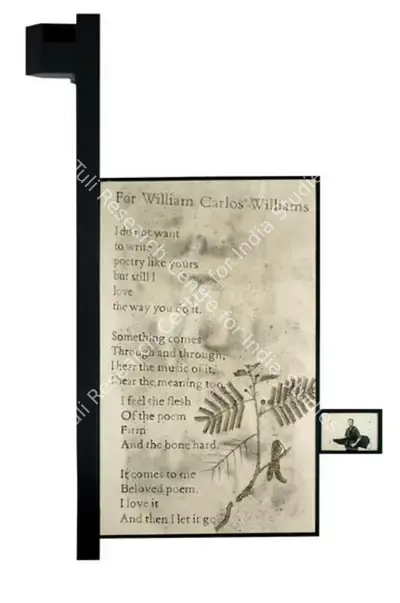 For William Carlos Williams
I do not want
to write
poetry like yours
but still I
love
the way you do it.
Something comes
Through and through,
I hear the music of it,
I hear the meaning too.
I feel the flesh
Of the poem
Firm
And the bone hard.
It comes to me
Beloved poem,
I love it
And then I let it go
Tuli Research Centre for India Studies